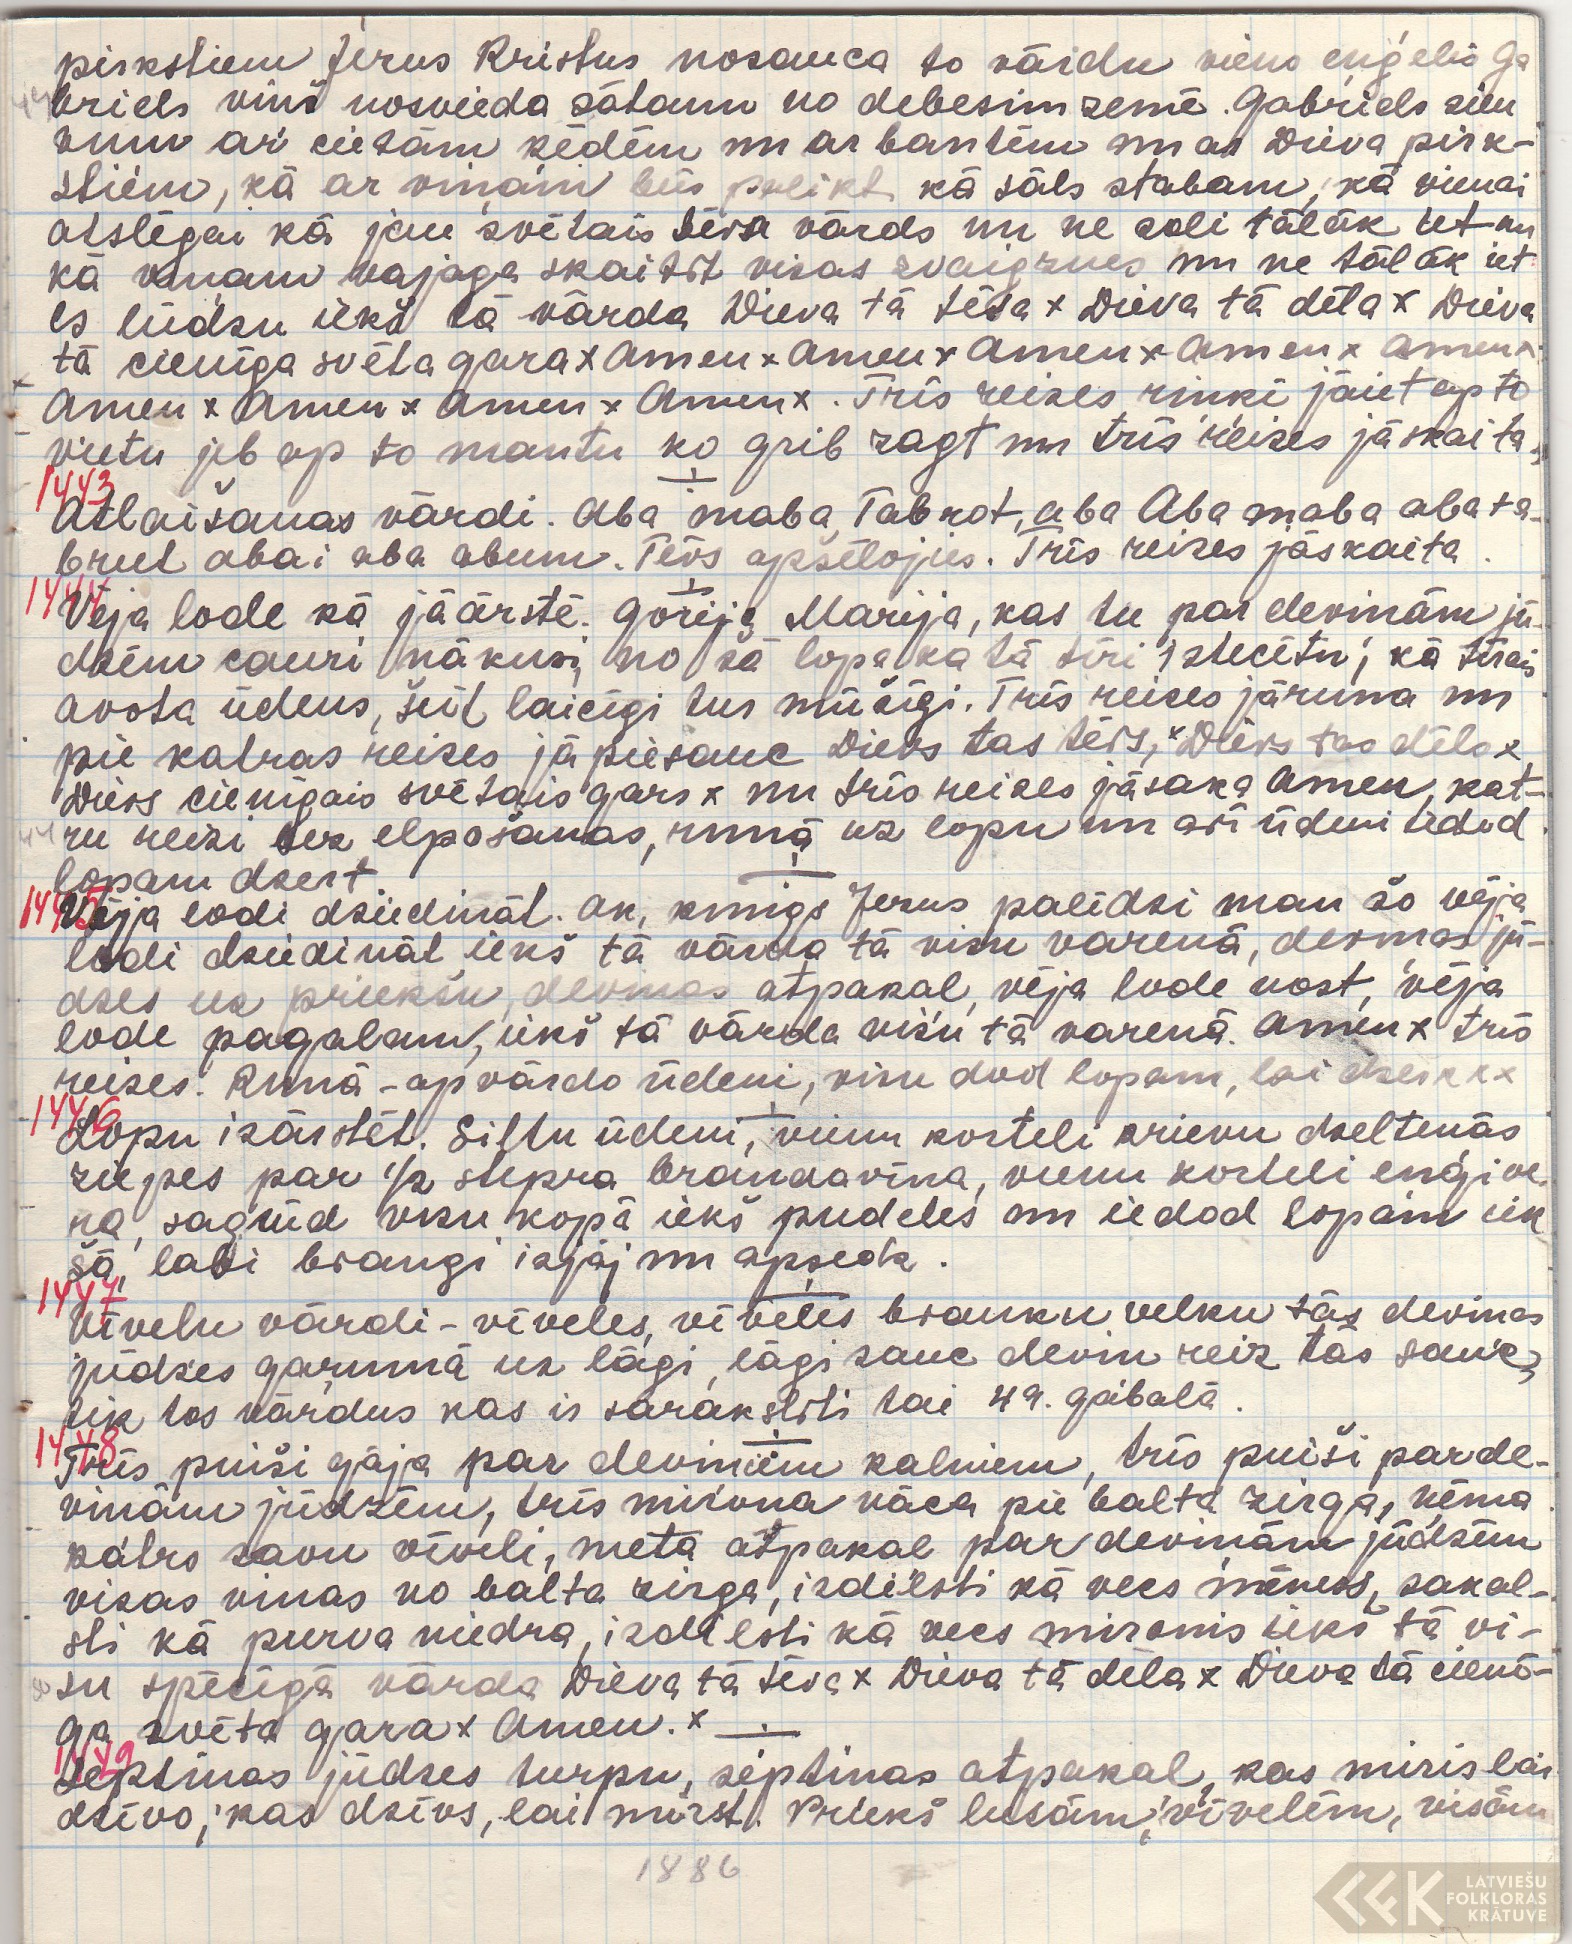 pirkstiem Jezus Kristus nosauca to vārdu viens eņģelis Ga
briels viņš nosvieda sātanu no debesim zemē. Gabriels sien
viņu ar cietām ķēdēm un ar bantēm un ar Dieva pirk-
stiem, kā ar viņam būs palikt kā sāls stabam, kā vienai
atslēgai kā jau svētais tēva vārds un ne soli tālāk iet un
kā viņam vajaga skaitīt visas zvaigznes un ne tālāk iet
es lūdzu iekš tā vārda Dieva tā tēva x Dieva tā dēla x Dieva
tā cienīga svēta gara x Amen x Amen x Amen x Amen x Amen x
Amen x Amen x Amen x Amen x. Trīs reizes riņķi jāiet ap to
vietu jeb ap to mantu ko grib zagt un trīs reizes jāskaita.
1443
Atlaišanas vārdi. Aba maba Tabrot, aba Aba maba aba ta-
brut abai aba abum. Tēvs apžēlojies. Trīs reizes jāskaita.
1444
Vēja lode kā jāārstē. Gorija Marija, kas tu par deviņām jū-
dzēm cauri nākusi, no šā lopa ka tā tīri iztecētu, kā tīrais
avota ūdens, šeit laicīgi tur mūžīgi. Trīs reizes jāruna un
pie katras reizes jāpiesauc Dievs tas tēvs, x Dievs tas dēls x
Dievs cienīgais svētais gars x un trīs reizes jāsaka Amen, kat-
ru reizi bez elpošanas, runā uz lopu un arī ūdeni iedod
lopam dzert
1445
Vēja lodi dziedināt. Ak, kungs Jezus palīdzi man šo vēja
lodi dziedināt iekš tā vārda tā visu varenā, deviņas jū-
dzes uz priekšu, deviņas atpakaļ, vēja lode nost, vēja
lode pagalam, iekš tā vārda visu tā varenā. Amen x trīs
reizes. Runā - apvārdo ūdeni, visu dod lopam, lai dzer x x x
1446
Lopu izārstēt. Siltu ūdeni, vienu korteli krievu dzeltenās
ziepes par 1/2 stipra brandavīna, vienu korteli enģive-
ra, sagrūd visu kopā iekš pudeles un iedod lopam iek
šā, labi brangi izjāj un apsedz.
1447
Vīveļu vārdi - vīveles, vīveles brauku velku tās deviņas
jūdzes garumā uz lāgi, lāgi sauc deviņ reiz tās sauc,
tik tos vārdus kas ir sarakstīti tai 49. gabalā.
1448
Trīs puiši gāja par deviņiem kalniem, trīs puiši par de-
viņām jūdzēm, trīs miroņa nāca pie balta zirga, ņēma
katrs savu vīveli, meta atpakaļ par deviņām jūdzēm
visas viņas no balta zirga, izdilsti kā vecs mēness, sakal-
sti kā purva niedra, izdilsti kā vecs mironis iekš tā vi-
su spēcīgā vārda Dieva tā tēva x Dieva tā dēla x Dieva tā cienī-
ga svēta gara x Amen. x
1449
Septiņas jūdzes turpu, septiņas atpakaļ, kas miris lai
dzīvo, kas dzīvs, lai mirst. Priekš lusām, vīvelēm, visām
1886
LATVIEŠU
FOLKLORAS
KRĀTUVE